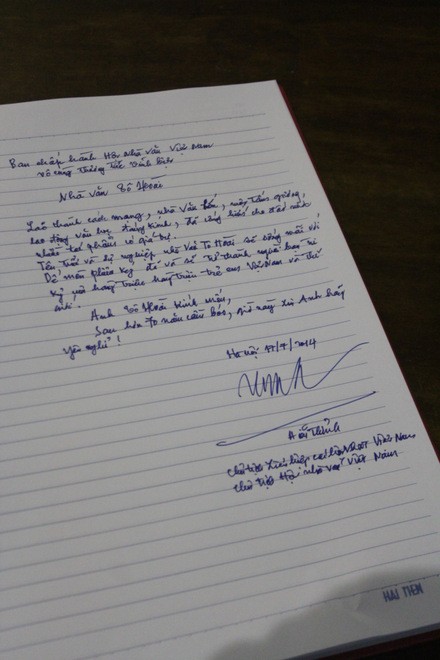 Ban chấp hành Hội nhà văn Việt Nam
vô cùng thương tiếc vĩnh biệt
Nhà văn Tô Hoài
Lão thành cách mạng, nhà văn lớn, một tấm gương
lao động văn học đáng kính, đã cống hiến cho đất nước
nhiều tác phẩm có giá trị.
Tên tuổi và sự nghiệp nhà văn Tô Hoài sẽ sống mãi với
Dế mèn phiêu lưu đã và sẽ trở thành người bạn tri
kỷ của hàng triệu hàng triệu trẻ em Việt Nam và thế
giới.
Anh Tô Hoài kính mến,
Sau hơn 70 năm cầm bút, giờ này xin Anh hãy
yên nghỉ!
Hà Nội 17/7/2014
Hữu Thỉnh
Chủ tịch Liên hiệp các hội VHNT Việt Nam
Chủ tịch Hội nhà văn Việt Nam
HẢI TIẾN